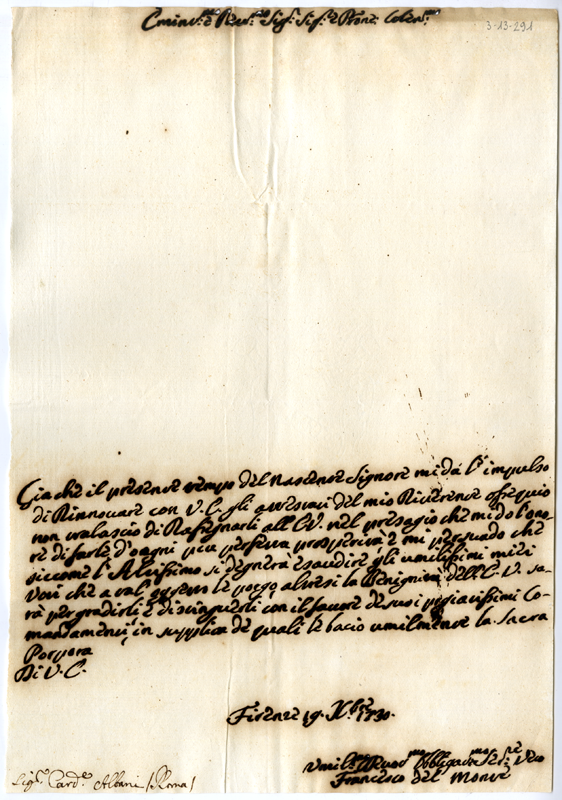 Emin.mo e Rev.mo Sig.r Sig.r e Prone Colen.mo
3-13-291
Gia che il presente tempo del Nascente Signore mi dà l'impulso
di Rinnovare con V.E. gli attestati del mio Riverente ossequio
non tralascio di Rassegnarli all'E.V. nel presagio che mi do l'ono-
re di farle d'ogni piu perfetta prosperità e mi persuado che
siccome l'Altissimo si degnerà esaudire gli umilissimi miei
Voti che a tal oggetto le porgo altresi la Benignità dell'E.V. sa-
rà per gradirli e distinguerli con il favore de suoi pregiatissimi Co-
mandamenti in supplica de quali le bacio umilmente la Sacra
Porpora
Di V.E.
Firenze 19. Xbre 1730.
Umil.mo Obbligatmo Ser.re Vero
Francesco del Monte
Sig.r Card.e Albani / Roma /